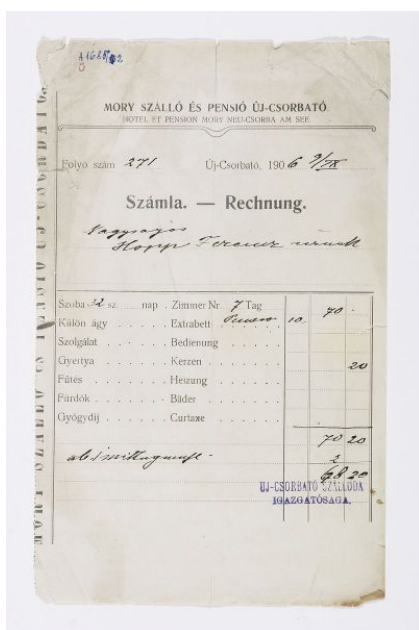 A 1628
MORY SZÁLLÓ ÉS PENSIÓ ÚJ-CSORBATÓ.
HOTEL ET PENSION MORY NEU-CSORBA AM SEE.
Folyó szám 271 Új-Csorbató, 1906 9/IX
Számla. — Rechnung.
Nagyságos
Hopp Ferencz úrnak
Szoba 32 sz. nap . Zimmer Nr. 7 Tag 70 ·
Külön ágy . . . . . Extrabett Pension 10.
Szolgálat . . . . . Bedienung . . . . .
Gyertya . . . . . Kerzen . . . . . 20
Fűtés . . . . . Heizung . . . . .
Fürdők . . . . . Bäder . . . . .
Gyógydíj . . . . . Curtaxe . . . . .
70 20
ab 1 2
68 20
UJ-CSORBATÓ SZÁLLODA
IGAZGATÓSÁGA.
MORY SZÁLLÓ ÉS PENSIÓ ÚJ-CSORBATÓ.